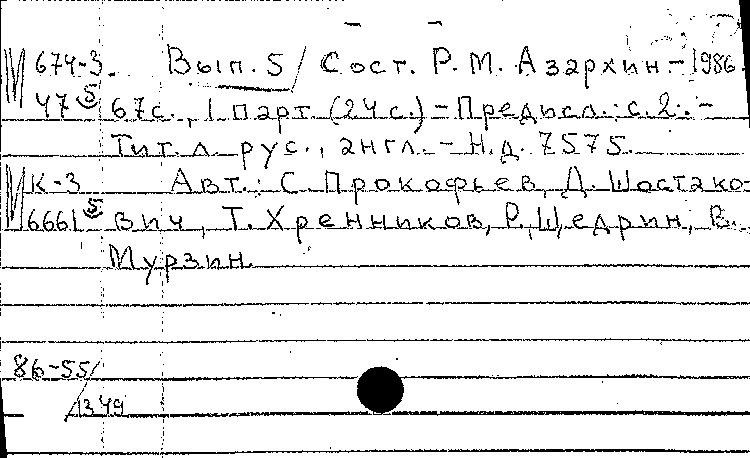 М 674-3 Вып. 5/ Сост. Р. М. Азархин. - 1986.
47 5 67с., 1 парт. (24с.) - Предисл.: с. 2. -
Тит. л. рус., англ. - Н.д. 7575.
М К-3 Авт.: С. Прокофьев, Д. Шостако-
6661 5 вич, Т. Хренников, Р. Щедрин, В.
Мурзин.
86-55/
1349